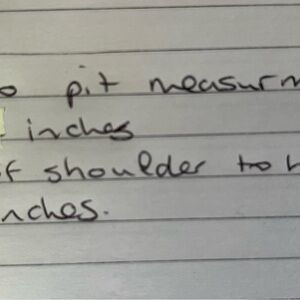 o pit measurm
inches
f shoulder to h
nches.